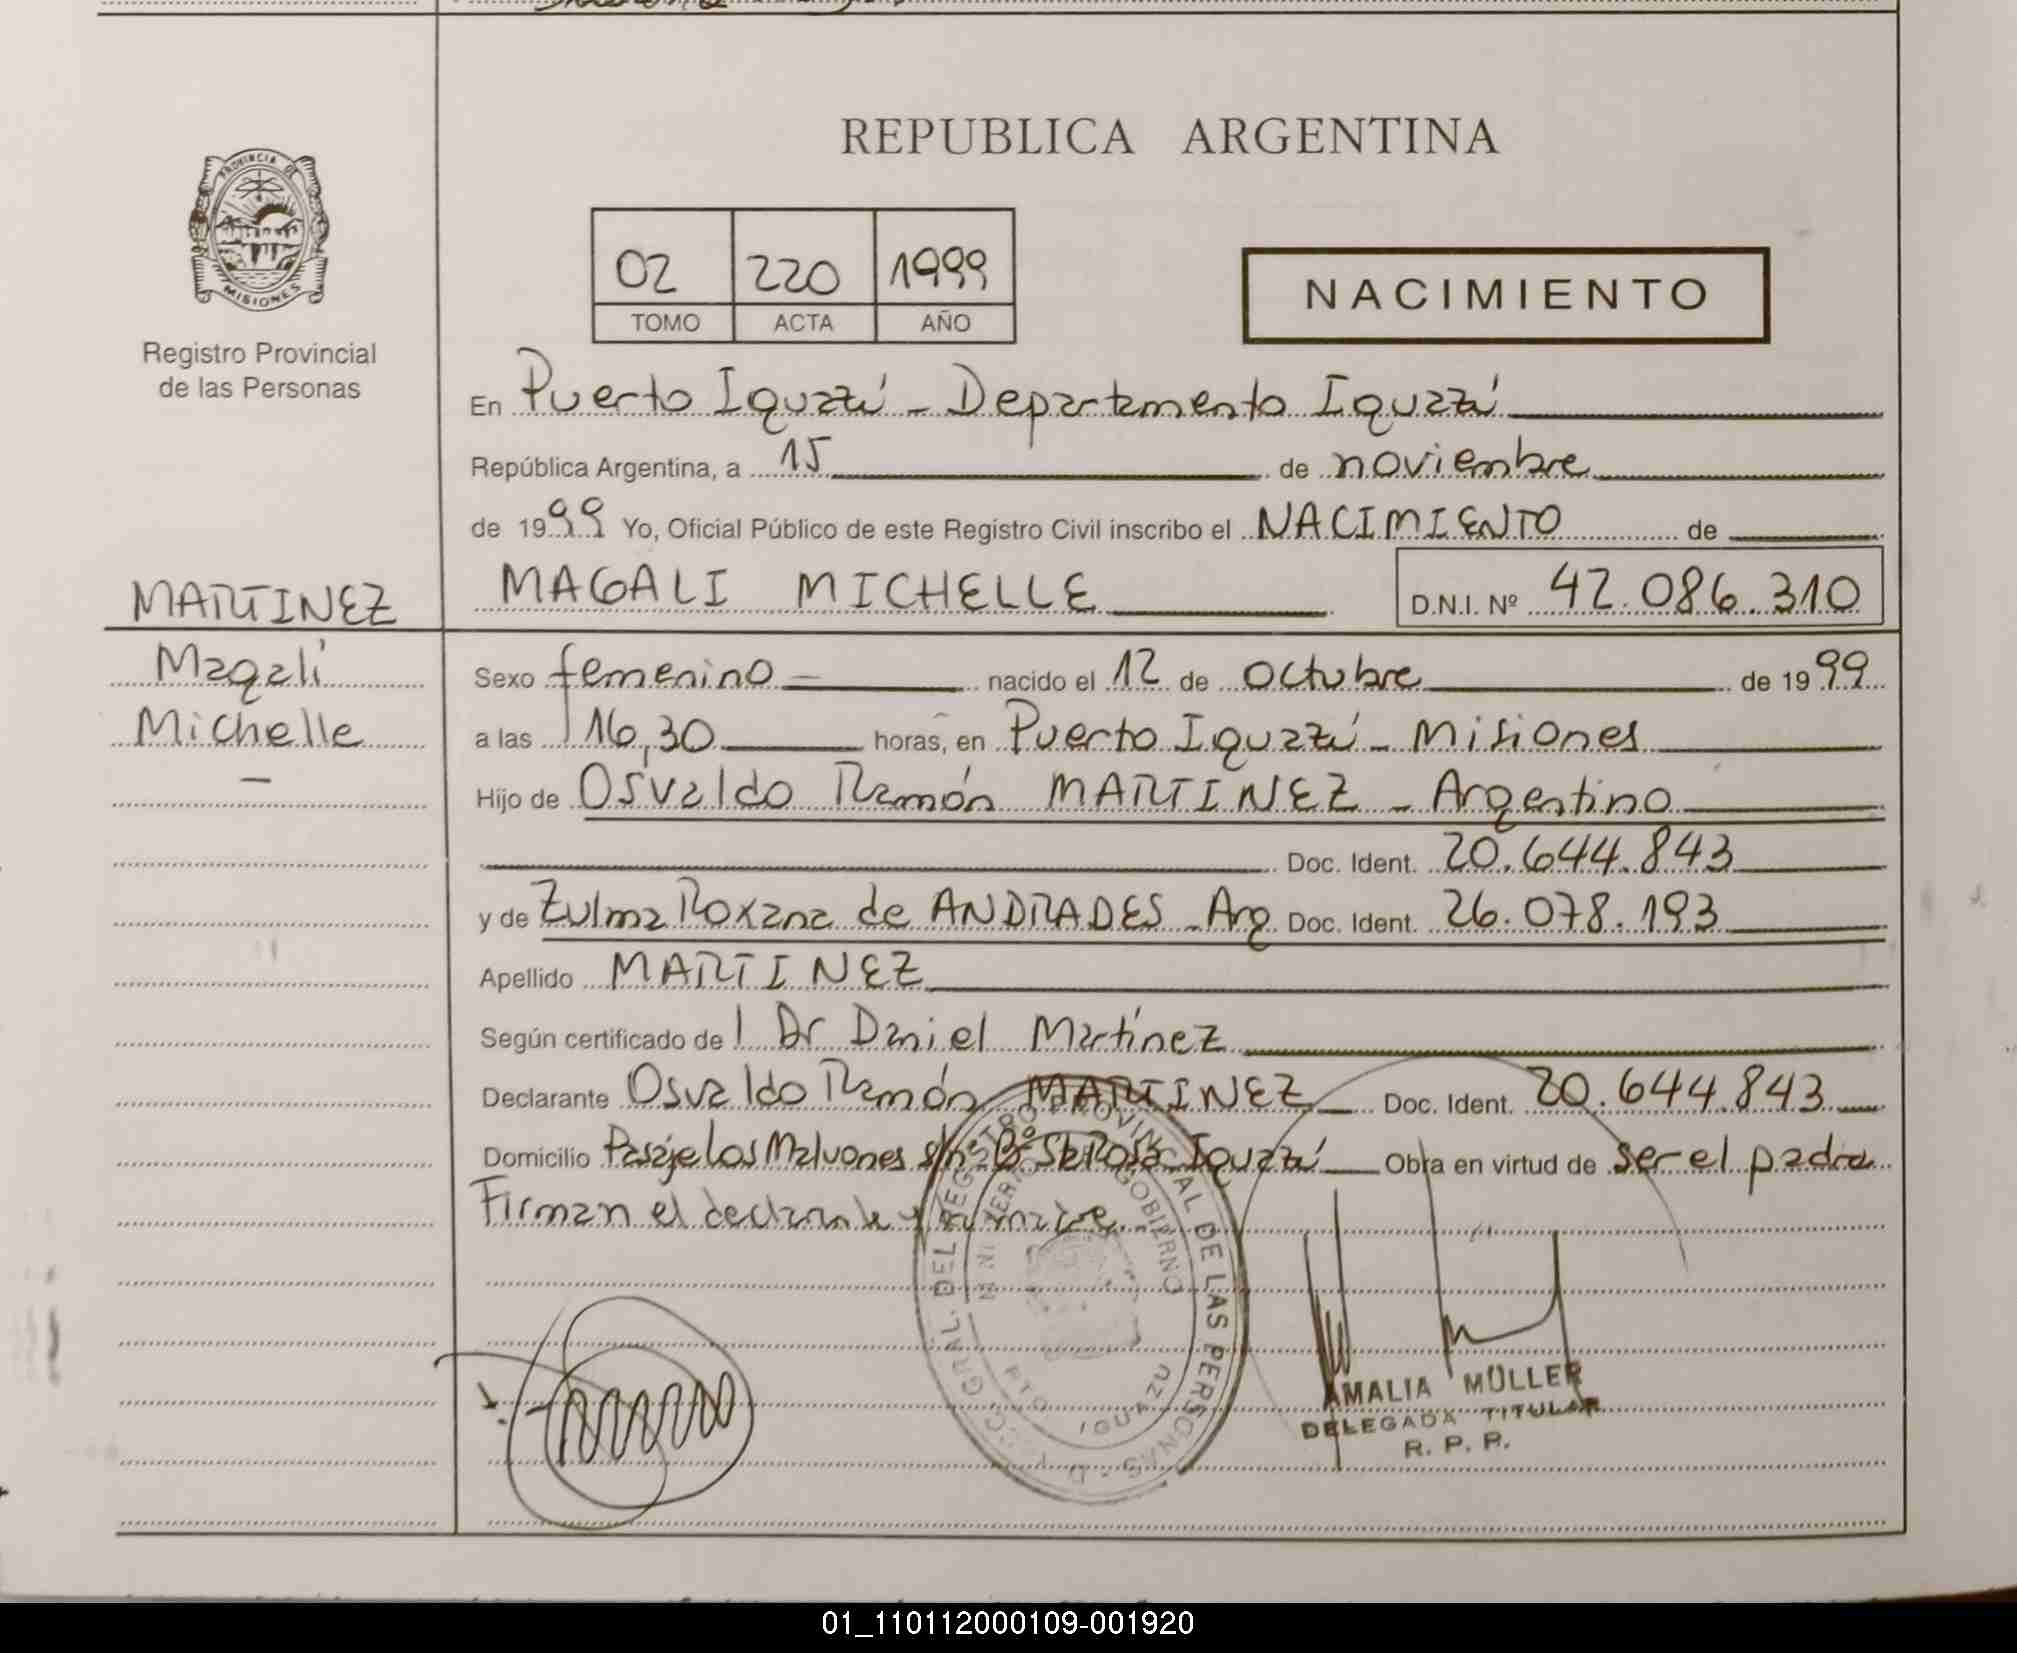 REPUBLICA ARGENTINA
PROVINCIA DE
MISIONES
Registro Provincial
de las Personas
02 220 1999
TOMO ACTA AÑO
NACIMIENTO
En Puerto Iguazú - Departamento Iguazú
República Argentina, a 15 de noviembre
de 1999 Yo, Oficial Público de este Registro Civil inscribo el NACIMIENTO de
MAGALI MICHELLE D.N.I. Nº 42.086.310
MARTINEZ
Magali
Michelle
Sexo femenino nacido el 12 de octubre de 1999
a las 16,30 horas, en Puerto Iguazú - Misiones
Hijo de Osvaldo Ramón MARTINEZ - Argentino
Doc. Ident. 20.644.843
y de Zulma Roxana de ANDRADES - Arg Doc. Ident. 26.078.193
Apellido MARTINEZ
Según certificado de l Dr Daniel Martínez
Declarante Osvaldo Ramón MARTINEZ Doc. Ident. 20.644.843
Domicilio Pasaje Los Malvones s/n Bº Sta Rosa Iguazú Obra en virtud de ser el padre
Firman el declarante y la madre.
GRAL. DEL REGISTRO PROVINCIAL DE LAS PERSONAS
MINISTERIO GOBIERNO
PTO IGUAZU
AMALIA MÜLLER
DELEGADA TITULAR
R. P. P.
01_110112000109-001920